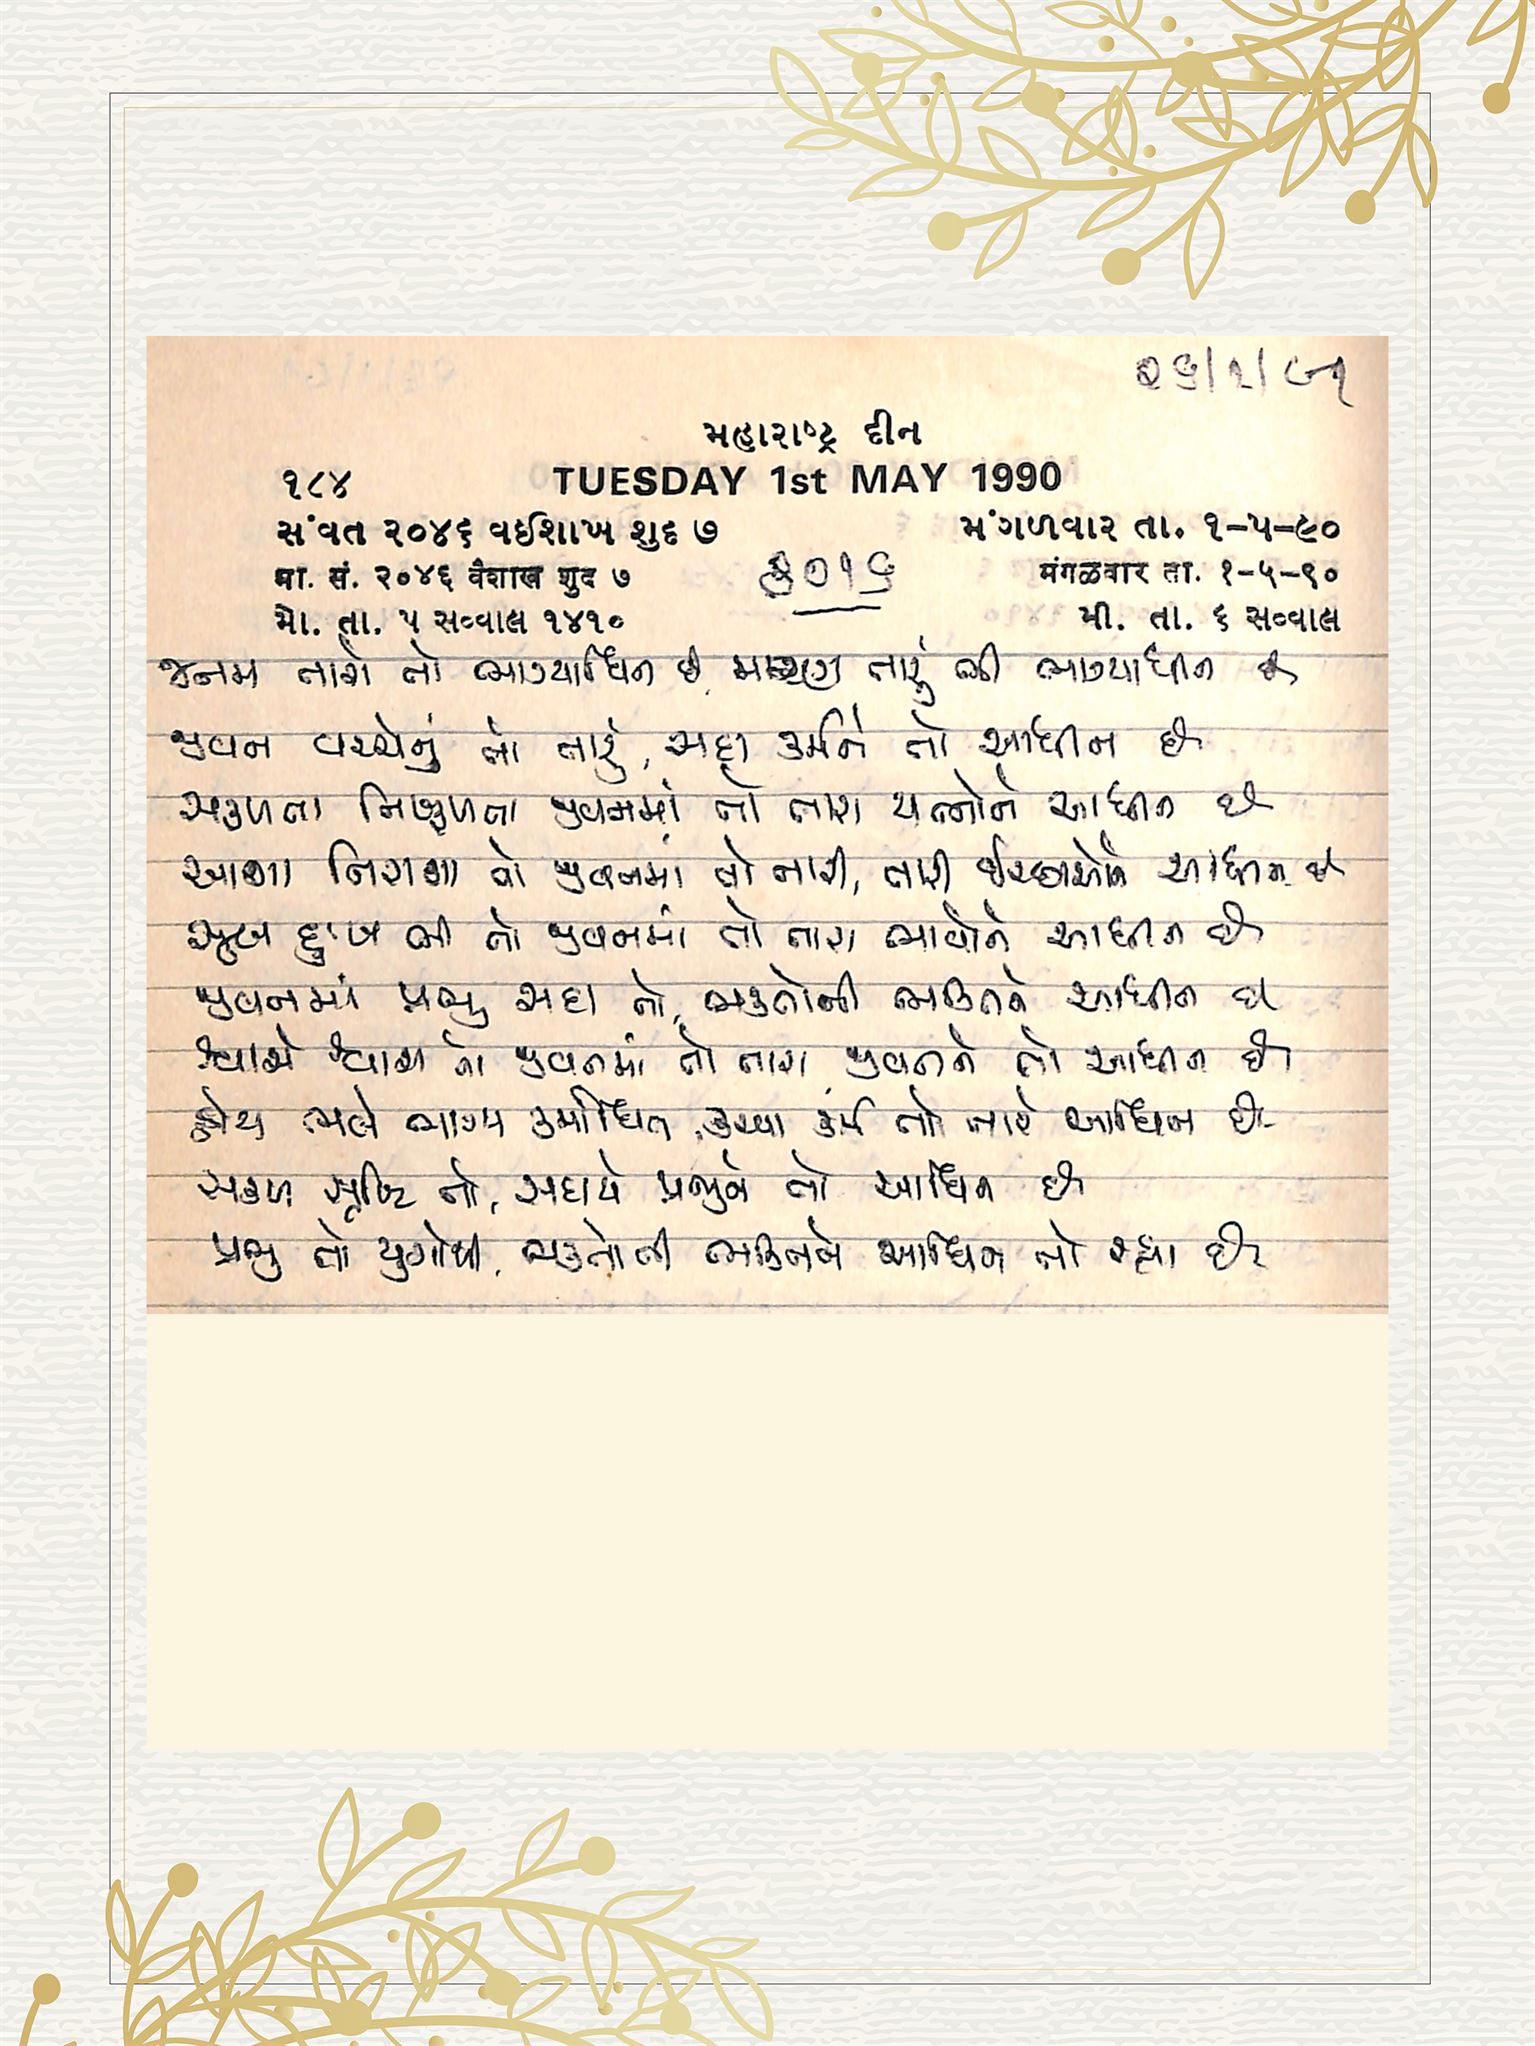 ૨૬/૧/૯૧
મહારાષ્ટ્ર દીન
૧૮૪ TUESDAY 1st MAY 1990
સંવત ૨૦૪૬ વઈશાખ શુદ ૭ મંગળવાર તા. ૧-૫-૯૦
मा. सं. २०४६ वैशाख शुद ७ मंगळवार ता. १-५-९०
મો. તા. ૫ સવ્વાલ ૧૪૧૦ મી. તા. ૬ સવ્વાલ
૩૦૧૬
જનમ તારો તો ભાગ્યાધિન છે, મરણ તારું ભી ભાગ્યાધીન છે
જીવન વચ્ચેનું તો તારું, સદા કર્મને તો આધીન છે
સફળતા નિષ્ફળતા જીવનમાં તો તારા યત્નોને આધીન છે
આશા નિરાશા તો જીવનમાં તો તારી, તારી ઈચ્છાઓને આધીન છે
સુખ દુઃખ ભી તો જીવનમાં તો તારા ભાવોને આધીન છે
જીવનમાં પ્રભુ સદા તો, ભક્તોની ભક્તિને આધીન છે
શ્વાસે શ્વાસ તો જીવનમાં તો તારા, જીવનને તો આધીન છે
હોય ભલે ભાગ્ય કર્માધિન, કરવા કર્મ તો તારે આધિન છે
સકળ સૃષ્ટિ તો, સદાયે પ્રભુને તો આધિન છે
પ્રભુ તો યુગોથી, ભક્તોની ભક્તિને આધિન તો રહ્યા છે